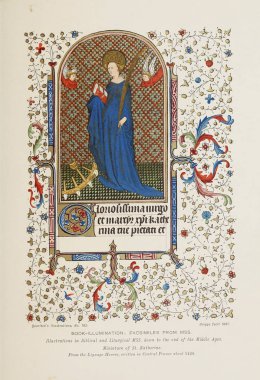 Glorosissima virgo
et martyr xpi kathe
rina tue pietati et
BOOK-ILLUMINATION: FACSIMILES FROM MSS.
Illustrations in Biblical and Liturgical MSS. down to the end of the Middle Ages.
Miniature of St. Katherine
From the Lignage Hours, written in Central France about 1420